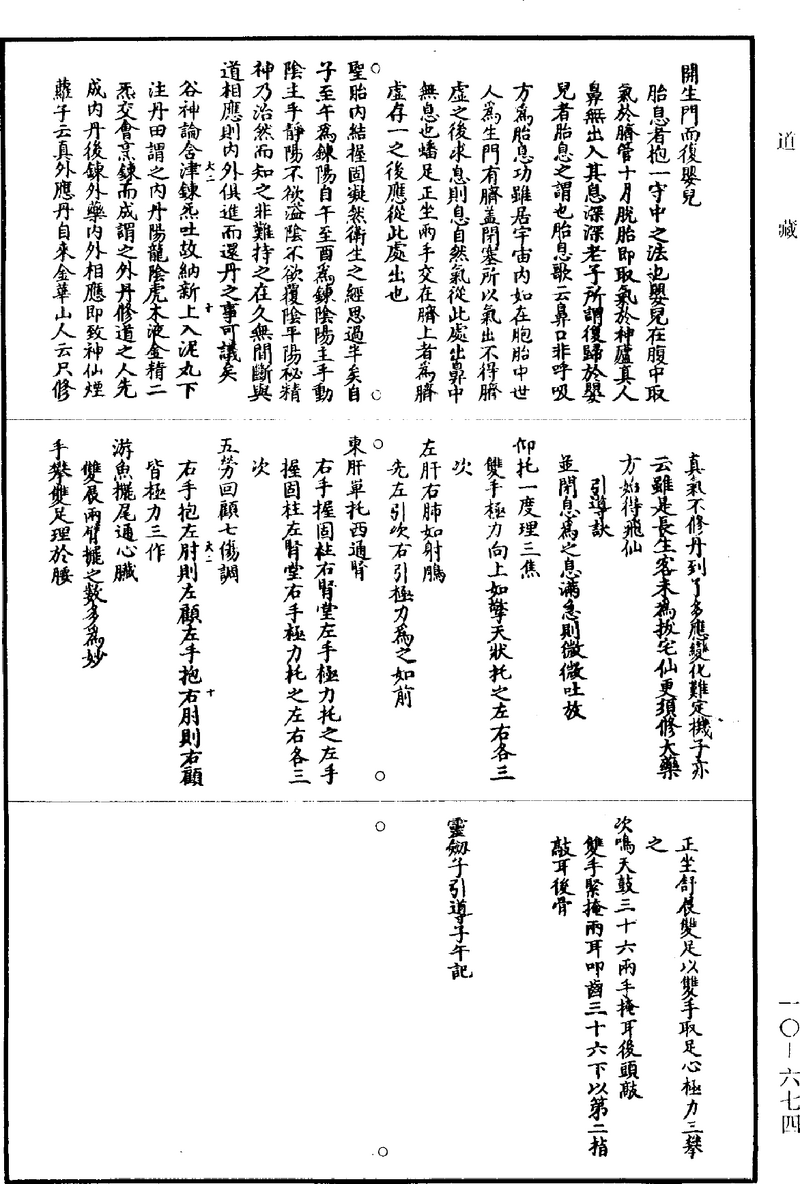 道藏
開生門而復嬰兒
胎息者抱一守中之法也嬰兒在腹中取
氣於臍管十月脫胎即取氣於神廬真人
鼻無出入其息深深老子所謂復歸於嬰
兒者胎息之謂也胎息歌云鼻口非呼吸
方為胎息功雖居宇宙內如在胞胎中世
人為生門有臍蓋閉塞所以氣出不得臍
虛之後求息則息自然氣從此處出鼻中
無息也蟠足正坐兩手交在臍上者為臍
虛存一之後應從此處出也
聖胎內結握固凝然衛生之經思過半矣自
子至午為鍊陽自午至酉為鍊陰陽主乎動
陰主乎靜陽不欲溢陰不欲覆陰平陽秘精
神乃治然而知之非難持之在久無間斷與
道相應則內外俱進而還丹之事可議矣
谷神論含津鍊炁吐故納新上入泥丸下
注丹田謂之內丹陽龍陰虎木液金精二
炁交會烹鍊而成謂之外丹修道之人先
成內丹後鍊外藥內外相應即致神仙煙
蘿子云真外應丹自來金華山人云只修
真氣不修丹到了多應變化難定機子亦
云雖是長生客未為拔宅仙更須修大藥
方始得飛仙
引導訣
並閉息為之息滿急則微微吐放
仰托一度理三焦
雙手極力向上如擎天狀托之左右各三
次
左肝右肺如射鵰
先左引次右引極力為之如前
東肝單托西通腎
右手握固拄右腎堂左手極力托之左手
握固柱左腎堂右手極力托之左右各三
次
五勞回顧七傷調
右手抱左肘則左顧左手抱右肘則右顧
皆極力三作
游魚擺尾通心臟
雙展兩臂擺之數多為妙
手攀雙足理於腰
正坐舒展雙足以雙手取足心極力三攀
之
次鳴天鼓三十六兩手掩耳後頭敲
雙手緊掩兩耳叩齒三十六下以第二指
敲耳後骨
靈劒子引導子午記
一〇—六七四